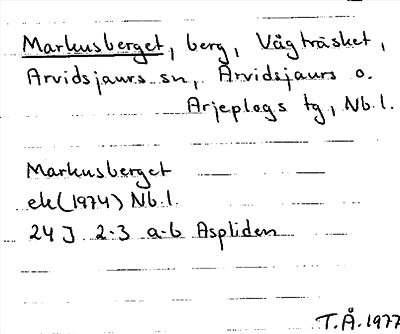 Markusberget, berg, Vågträsket,
Arvidsjaurs sn, Arvidsjaurs o.
Arjeplogs tg, Nb.l.
Markusberget
ek(1974) Nb.l.
24 J 2-3 a-b Aspliden
T.Å.1977